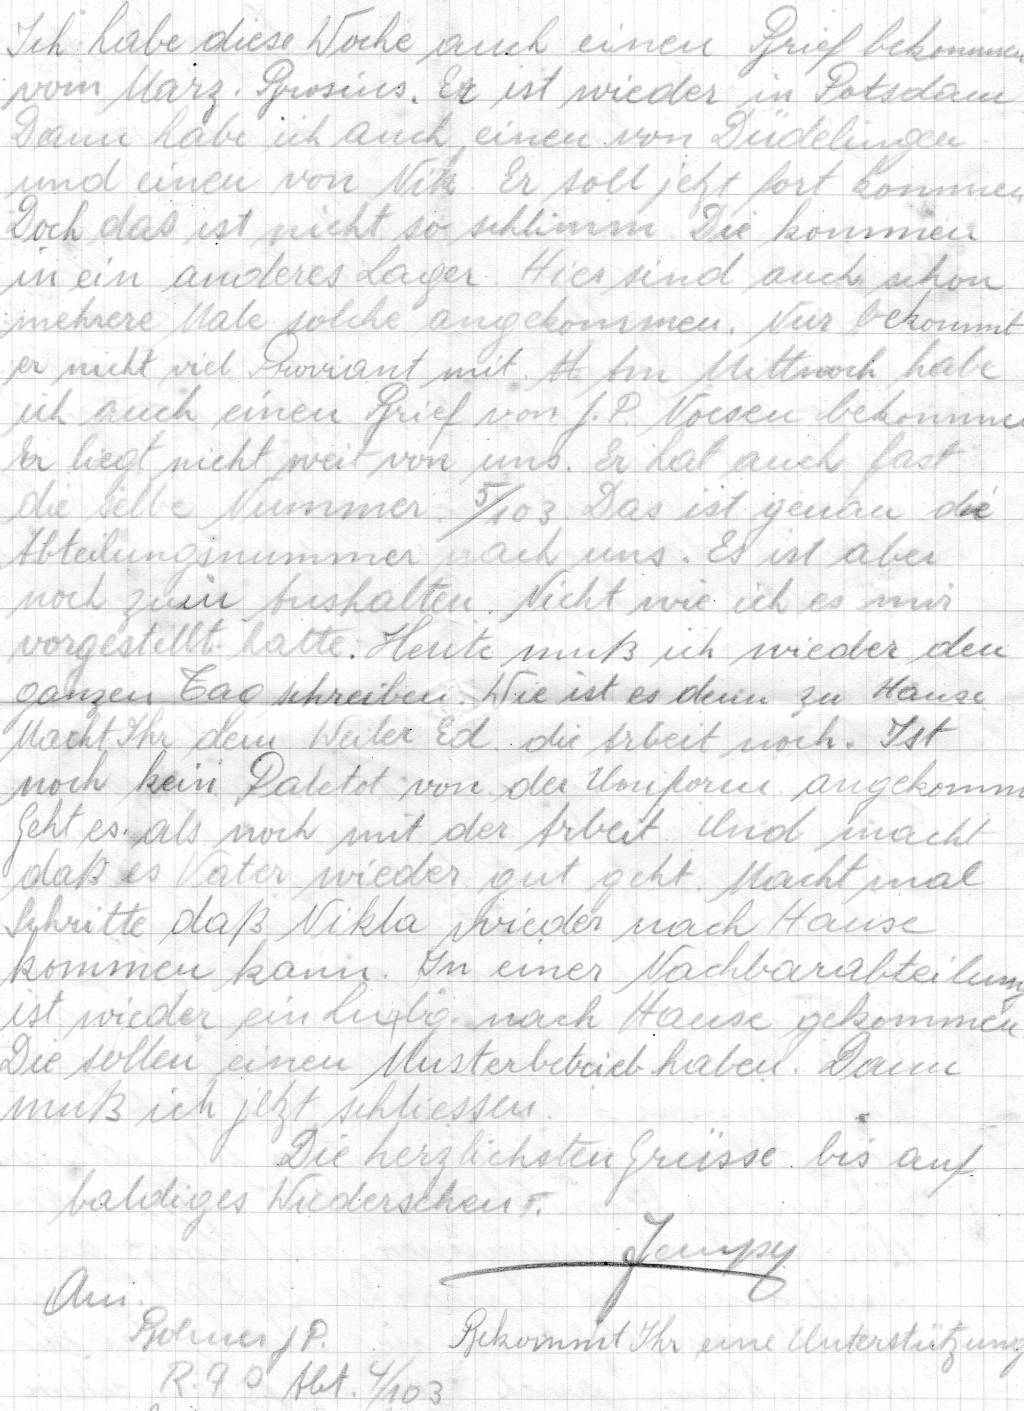 Ich habe diese Woche auch einen Brief bekommen
vom Marz. Brosius. Er ist wieder in Potsdam
Dann habe ich auch einen von Düdelingen
und einen von Nik. Er soll jetzt fort kommen
Doch das ist nicht so schlimm Die kommen
in ein anderes Lager. Hier sind auch schon
mehrere Male solche angekommen. Nur bekommt
er nicht viel Proviant mit. Am Mittwoch habe
ich auch einen Brief von J. P. Noesen bekommen
Er liegt nicht weit von uns. Er hat auch fast
die selbe Nummer. 5/103 Das ist genau die
Abteilungsnummer nach uns. Es ist aber
noch zum Aushalten. Nicht wie ich es mir
vorgestellt hatte. Heute muß ich wieder den
ganzen Tag schreiben. Wie ist es denn zu Hause
Macht Ihr dem Weiler Ed. die Arbeit noch. Ist
noch kein Paletot von der Uniform angekomm
Geht es als noch mit der Arbeit Und macht
daß es Vater wieder gut geht. Macht mal
Schritte daß Nikla wieder nach Hause
kommen kann. In einer Nachbarabteilung
ist wieder ein nach Hause gekommen
Die sollen einen Musterbetrieb haben. Dann
muß ich jetzt schliessen.
Die herzlichsten Grüsse bis auf
baldiges Wiedersehen
Jempy
An.
J P. Bekommt Ihr eine Unterstützung
R. A D Abt. 4/103